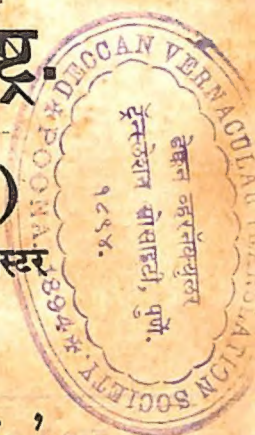 DECCAN VERNACULAR TRANSLATION SOCIETY. * POONA. 1894. *
डेक्कन व्हर्नाक्युलर
ट्रॅन्सलेशन सोसाइटी, पुणें.
१८९४.
स्टर